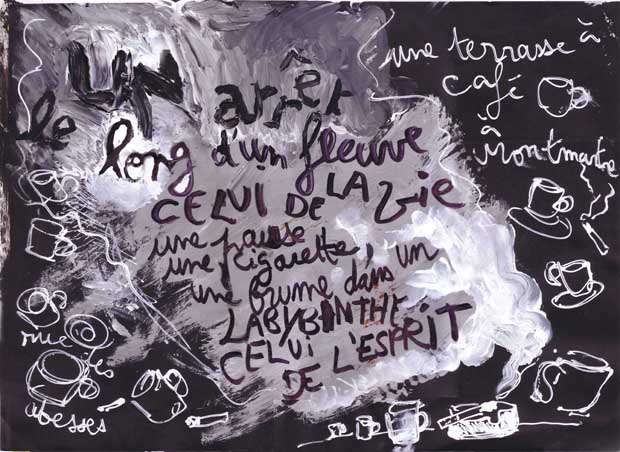 UN arrêt
le long d'un fleuve
CELUI DE LA vie
une pause
une cigarette,
une brume dans un
LABYBINTHE
CELUI
DE L'ESPRIT
une terrasse à
café
à Montmartre
rue des
abesses